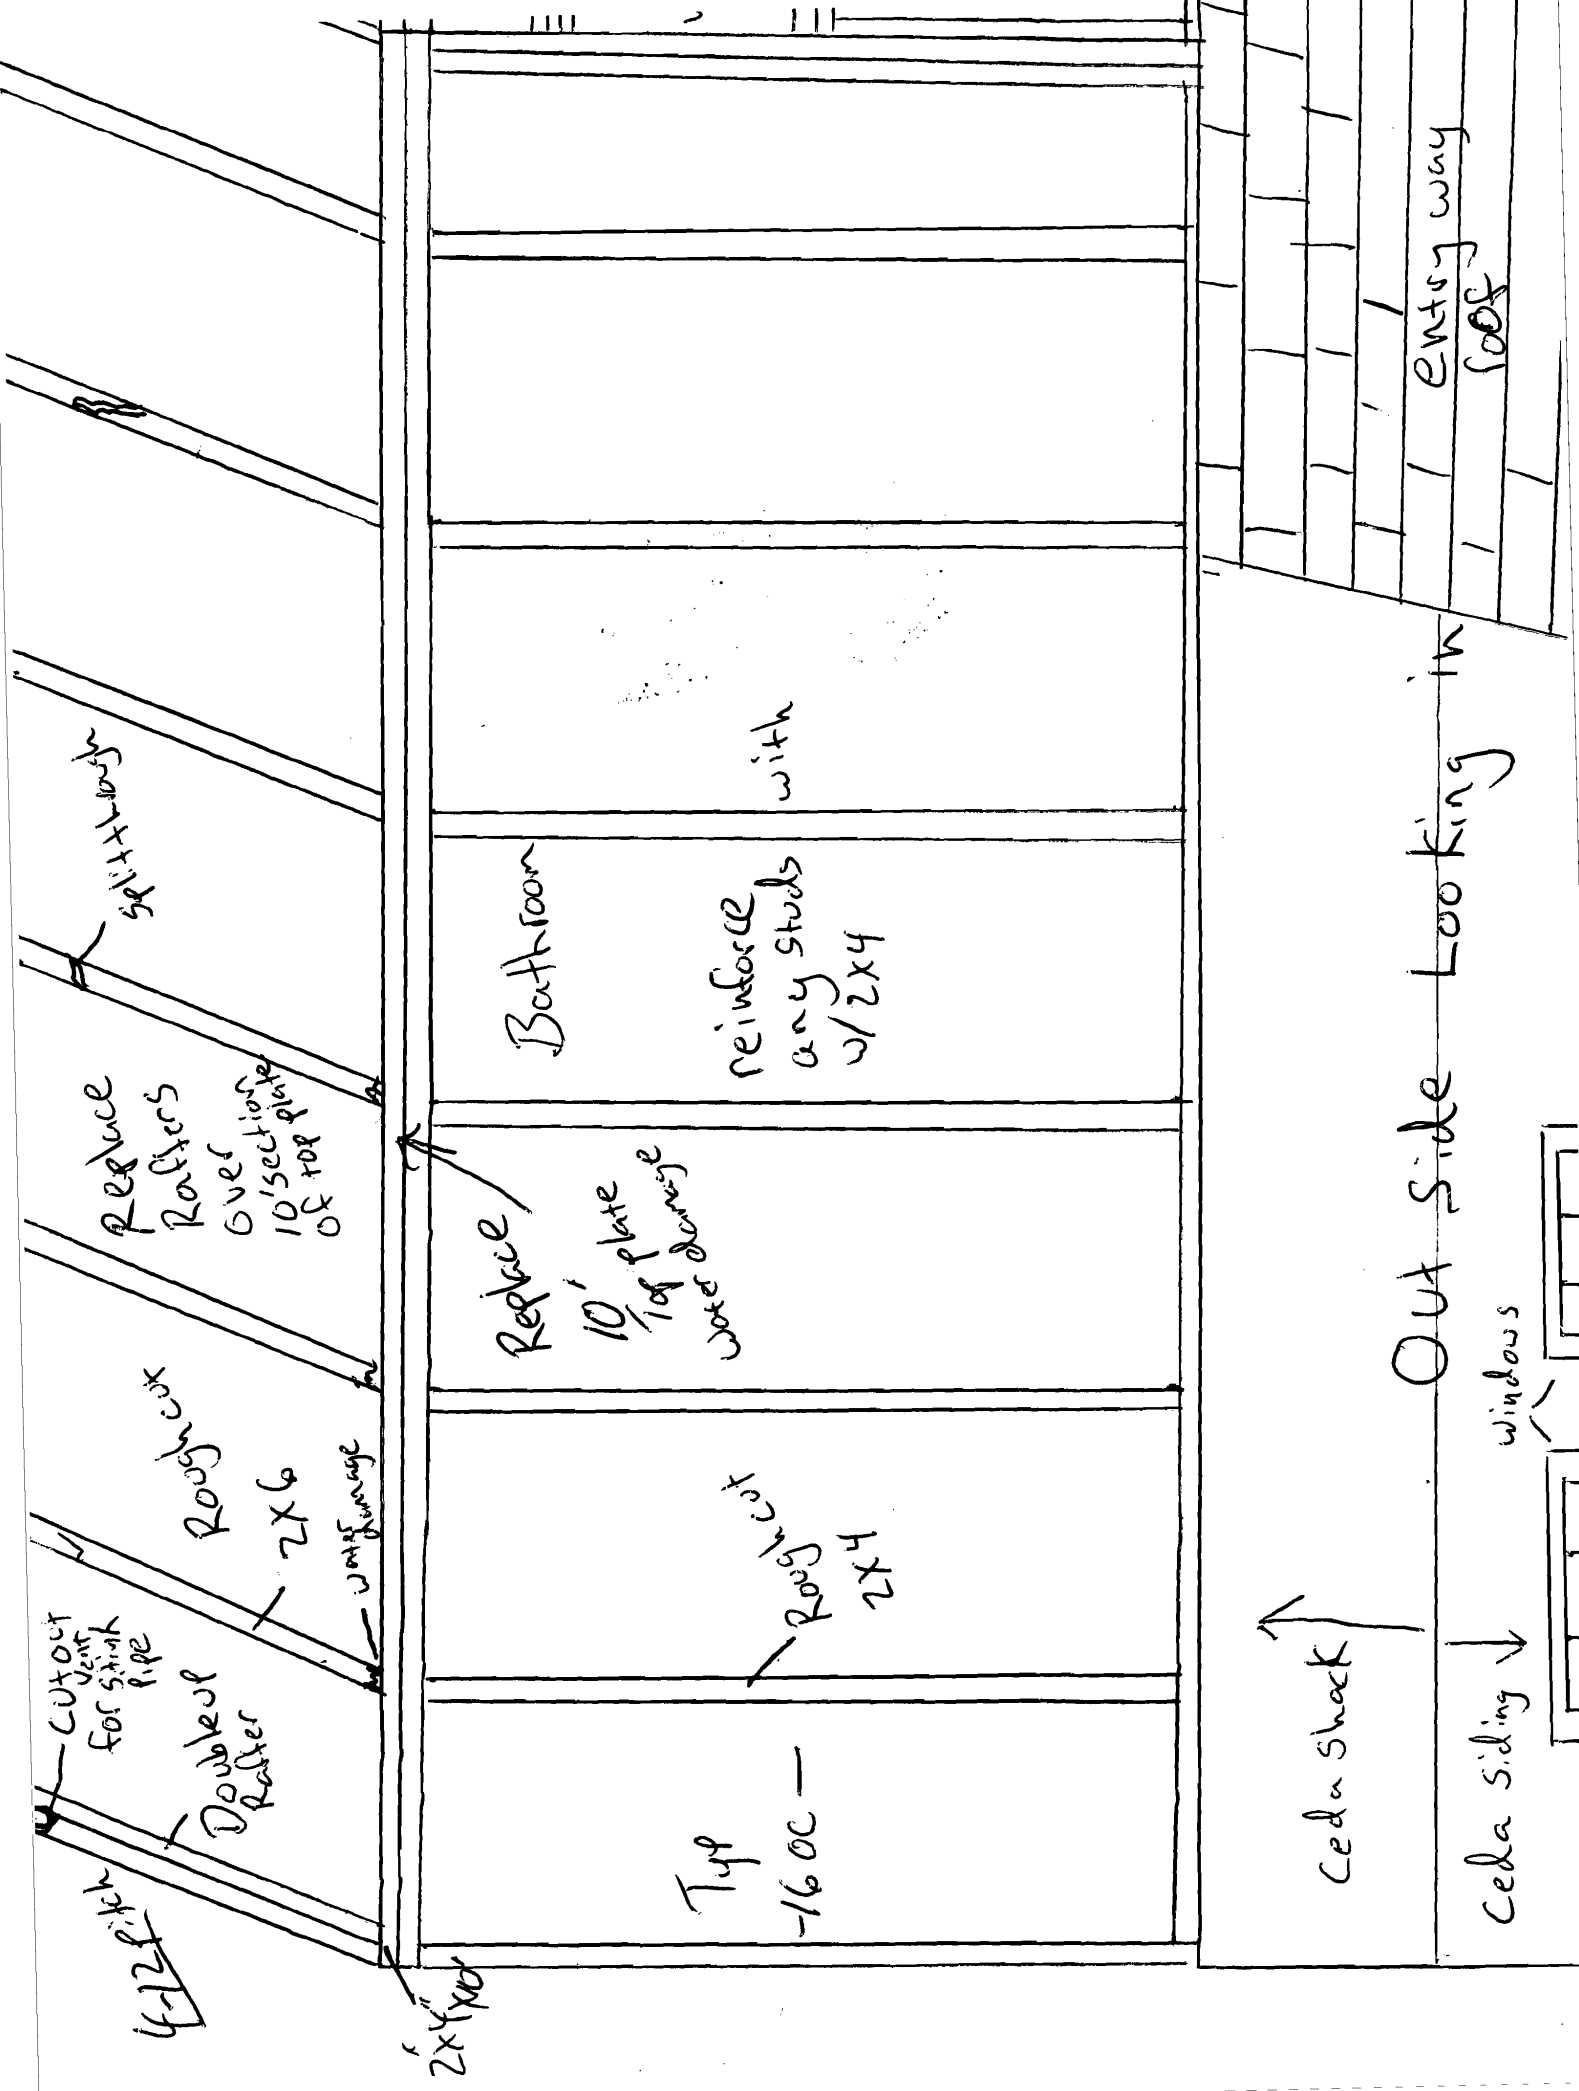 4-12 pitch
cutout
vent
for stink
pipe
Doubleup
Rafter
Rough cut
2x6
water
damage
Replace
Rafters
over
10' section
of top plate
split through
2"x4"
Replace
10'
top plate
water damage
Bathroom
Typ
-16 OC-
Rough cut
2x4
reinforce
any studs with
w/ 2x4
Ceda shack
Ceda siding
windows
Out Side Looking in
entry way
roof